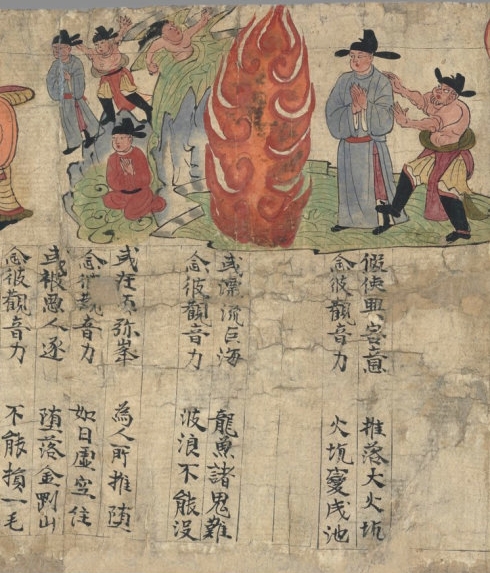 假使興害意 推落大火坑
念彼觀音力 火坑變成池
或漂流巨海 龍魚諸鬼難
念彼觀音力 波浪不能没
或在須弥峯 為人所推堕
念彼觀音力 如日虚空住
或被惡人逐 堕落金剛山
念彼觀音力 不能損一毛